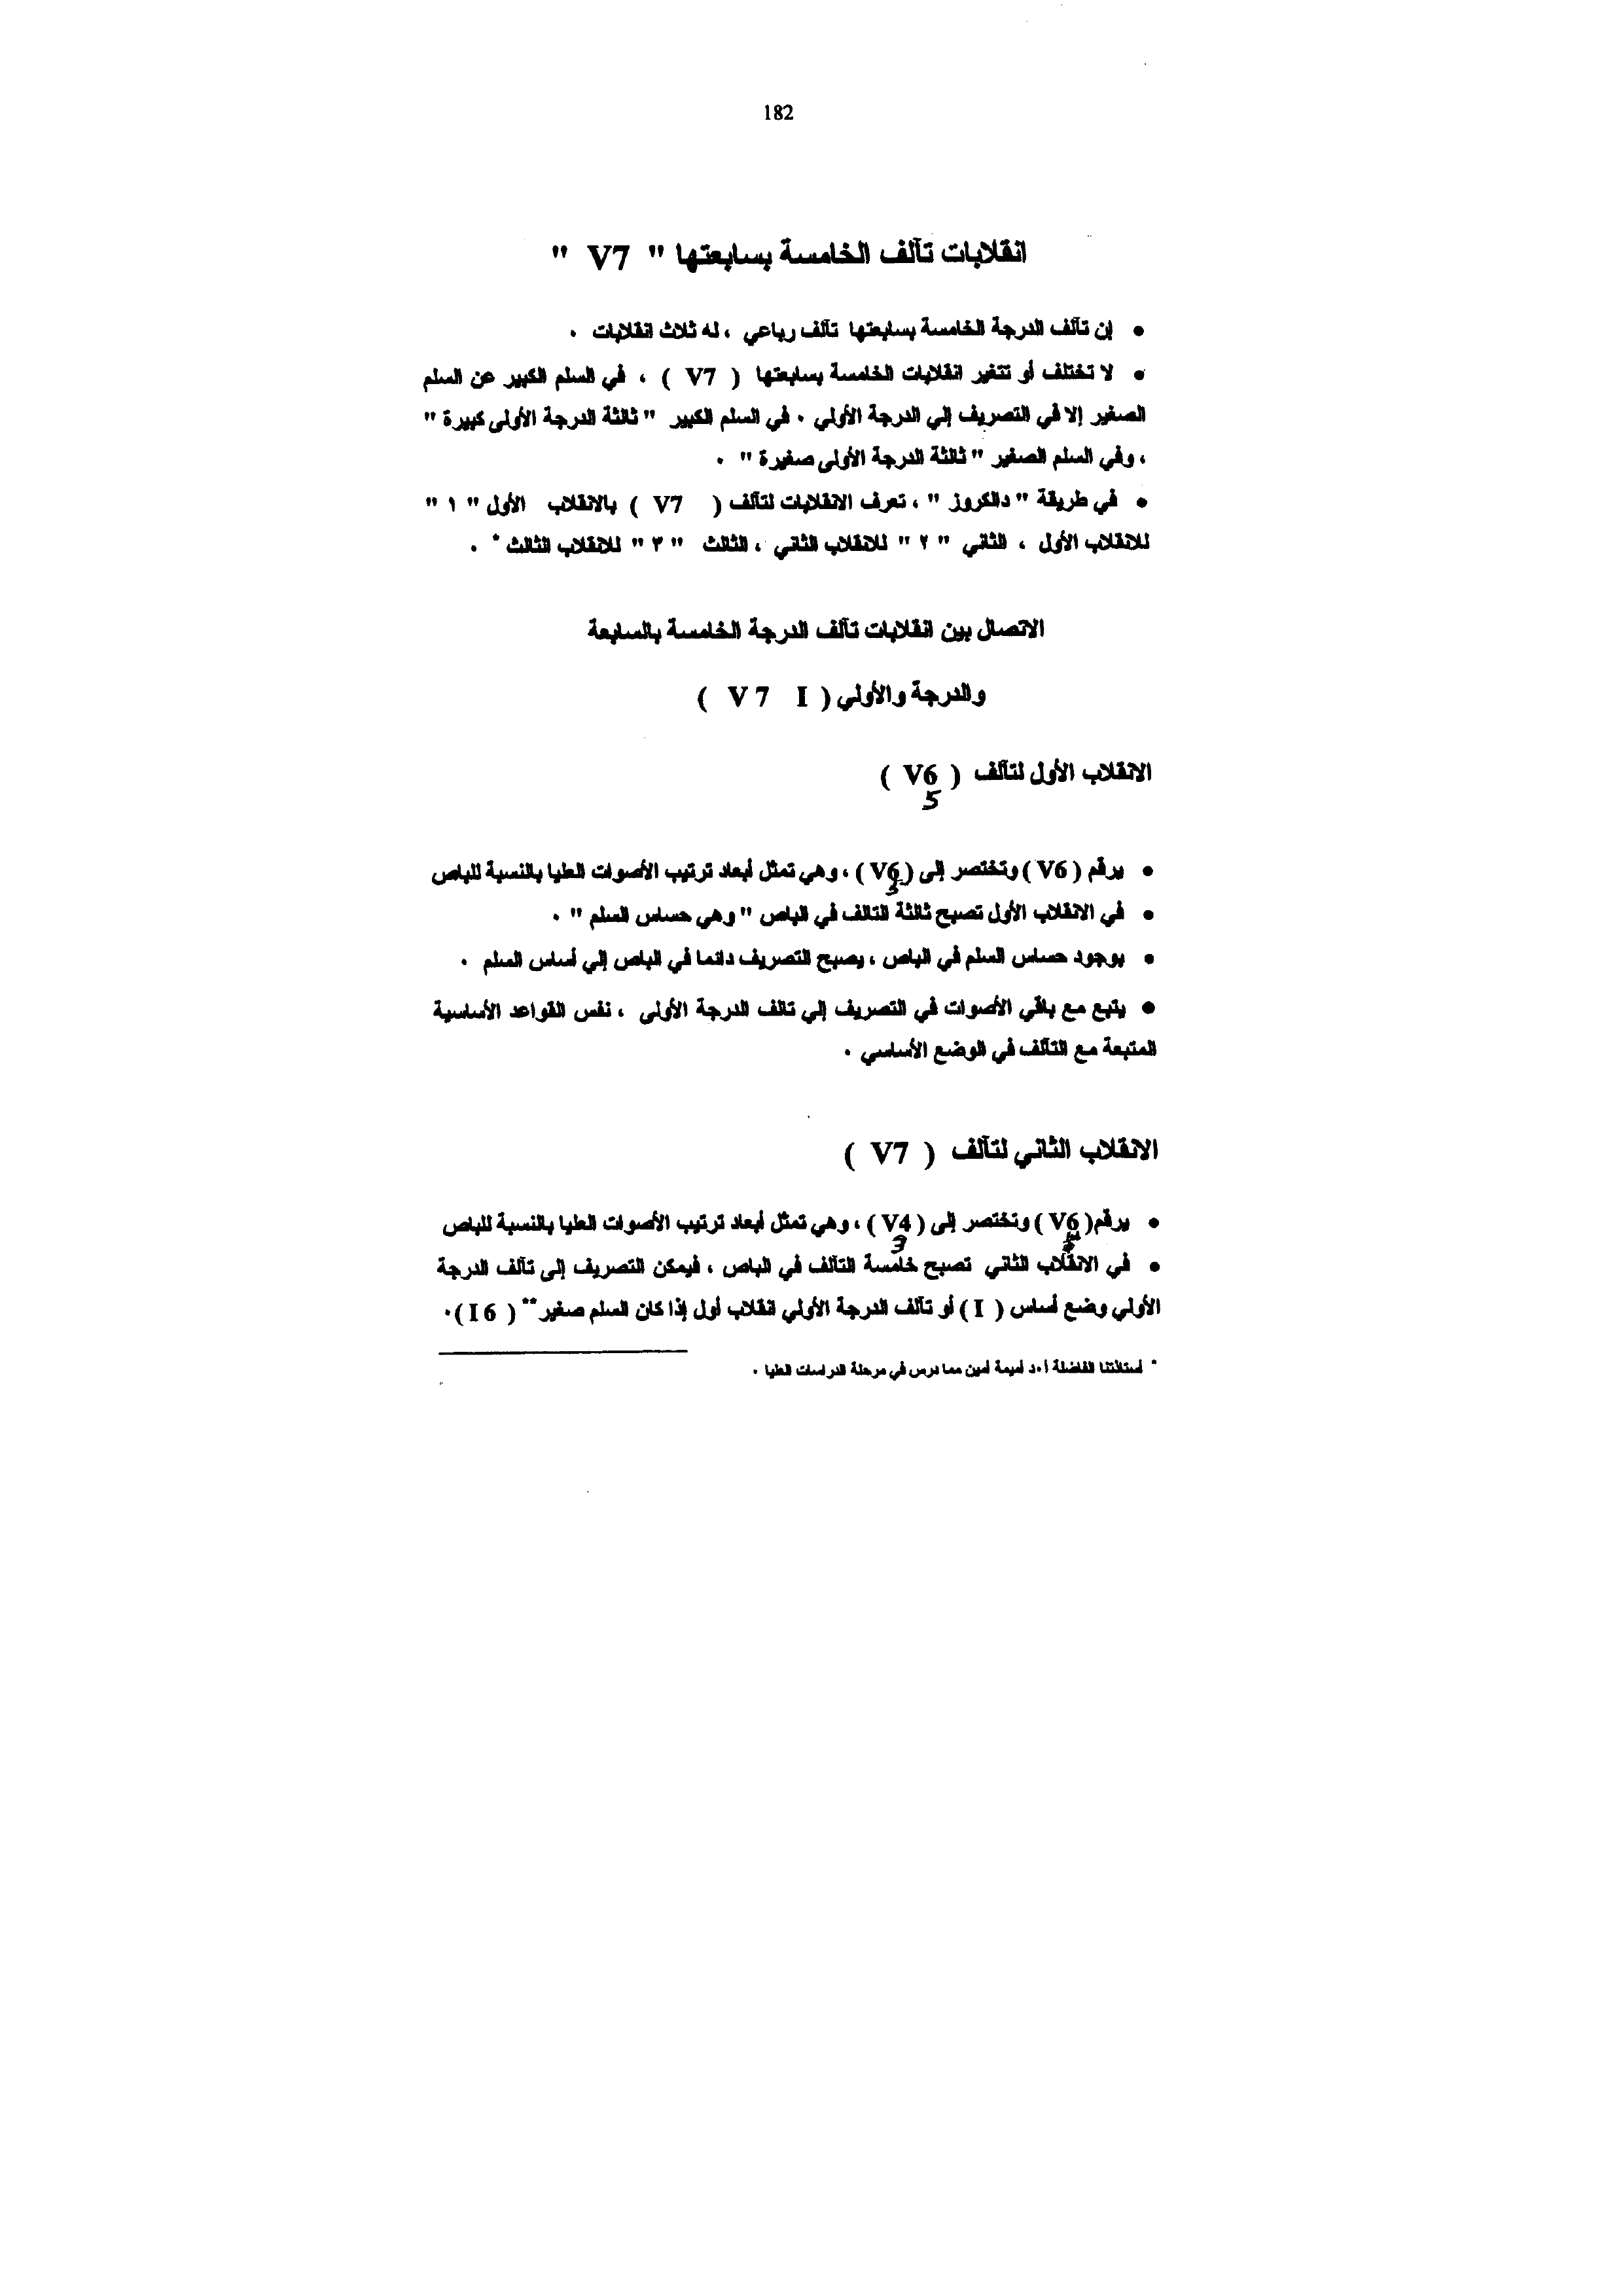 182
انقلابات تآلف الخامسة بسابعتها " V7 "
• إن تآلف الدرجة الخامسة بسابعتها تآلف رباعي ، له ثلاث انقلابات .
• لا تختلف أو تتغير انقلابات الخامسة بسابعتها ( V7 ) ، في السلم الكبير عن السلم
الصغير إلا في التصريف إلي الدرجة الأولي . في السلم الكبير " ثالثة الدرجة الأولى كبيرة "
، وفي السلم الصغير " ثالثة الدرجة الأولى صغيرة " .
• في طريقة " دالكروز " ، تعرف الانقلابات لتآلف ( V7 ) بالانقلاب الأول " ١ "
للانقلاب الأول ، الثاني " ٢ " للانقلاب الثاني ، الثالث " ٣ " للانقلاب الثالث * .
الاتصال بين انقلابات تآلف الدرجة الخامسة بالسابعة
والدرجة والأولي ( V 7 I )
الانقلاب الأول لتآلف ( V6 )
5
• يرقم ( V6 ) وتختصر إلى ( V6 ) ، وهي تمثل أبعاد ترتيب الأصوات العليا بالنسبة للباص
5
• في الانقلاب الأول تصبح ثالثة التالف في الباص " وهي حساس السلم " .
• بوجود حساس السلم في الباص ، يصبح التصريف دائما في الباص إلي أساس السلم .
• يتبع مع باقي الأصوات في التصريف إلي تالف الدرجة الأولى ، نفس القواعد الأساسية
المتبعة مع التآلف في الوضع الأساسي .
الانقلاب الثاني لتآلف ( V7 )
• يرقم ( V6 ) وتختصر إلى ( V4 ) ، وهي تمثل أبعاد ترتيب الأصوات العليا بالنسبة للباص
3
• في الانقلاب الثاني تصبح خامسة التآلف في الباص ، فيمكن التصريف إلى تآلف الدرجة
الأولي وضع أساس ( I ) أو تآلف الدرجة الأولي انقلاب أول إذا كان السلم صغير ** ( I 6 ) .
* أستاذتنا الفاضلة أ.د أميمة أمين مما درس في مرحلة الدراسات العليا .